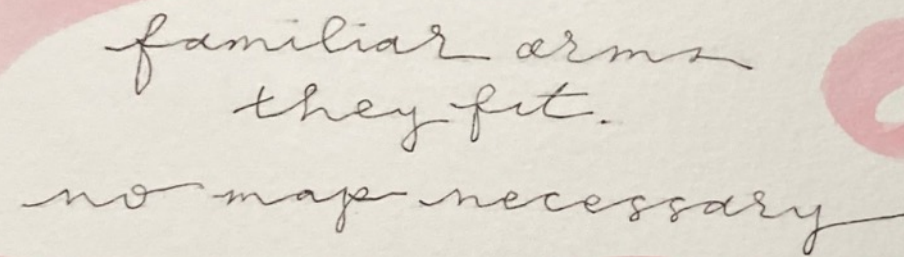 familiar arms
they fit.
no map necessary